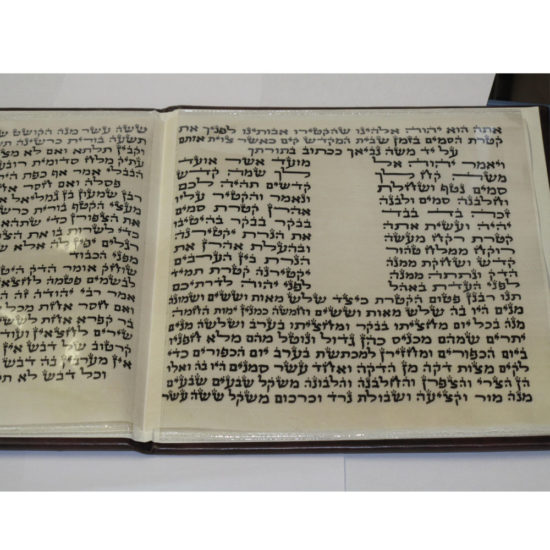 אתה הוא יהוה אלהינו שהקטירו אבותינו לפניך את
קטרת סמים בזמן שבית המקדש קים כאשר צוית אותם
על יד משה נביאך ככתוב בתורתך
ויאמר יהוה אל
משה קח לך
סמים נטף ושחלת
וחלבנה סמים ולבנה
זכה בד בבד
יהיה ועשית אתה
קטרת רקח מעשה
רוקח ממלח טהור
קדש ושחקת ממנה
הדק ונתתה ממנה
לפני העדת באהל
מועד אשר אועד
לך שמה קדש
קדשים תהיה לכם
ונאמר והקטיר עליו
אהרן קטרת סמים
בבקר בבקר בהיטיבו
את הנרת יקטירנה
ובהעלת אהרן את
הנרת בין הערבים
יקטירנה קטרת תמיד
לפני יהוה לדרתיכם
תנו רבנן פטום הקטרת כיצד שלש מאות וששים ושמונה
מנים היו בה שלש מאות וששים וחמשה כמנין ימות החמה
מנה בכל יום מחציתו בבקר ומחציתו בערב ושלשה מנים
יתרים שמהם מכניס כהן גדול ונוטל מהם מלא חפניו
ביום הכפורים ומחזירן למכתשת בערב יום הכפורים כדי
לקים מצות דקה מן הדקה ואחד עשר סמנים היו בה ואלו
הן הצרי והצפרן והחלבנה והלבונה משקל שבעים שבעים
מנה מור וקציעה ושבולת נרד וכרכום משקל ששה עשר
ששה עשר מנה הקושט
תשעה בורית כרשינה
וקבין תלתא ואם לא
עתיק מלח סדומית רובע
הבבלי אומר אף כפת
פסלה ואם חסר
רבן שמעון בן גמליאל
מעצי הקטף בורית
את הצפורן כדי
כדי לשרות בו את
רגלים יפין לה אלא
מפני הכבוד
שוחק אומר הדק היטב
לבשמים פטמה לחצאין
אמר רבי יהודה זה
בר קפרא אחת
שירים לחצאין ועוד
קרטוב של דבש
אין מערבין בה דבש
וכל דבש לא